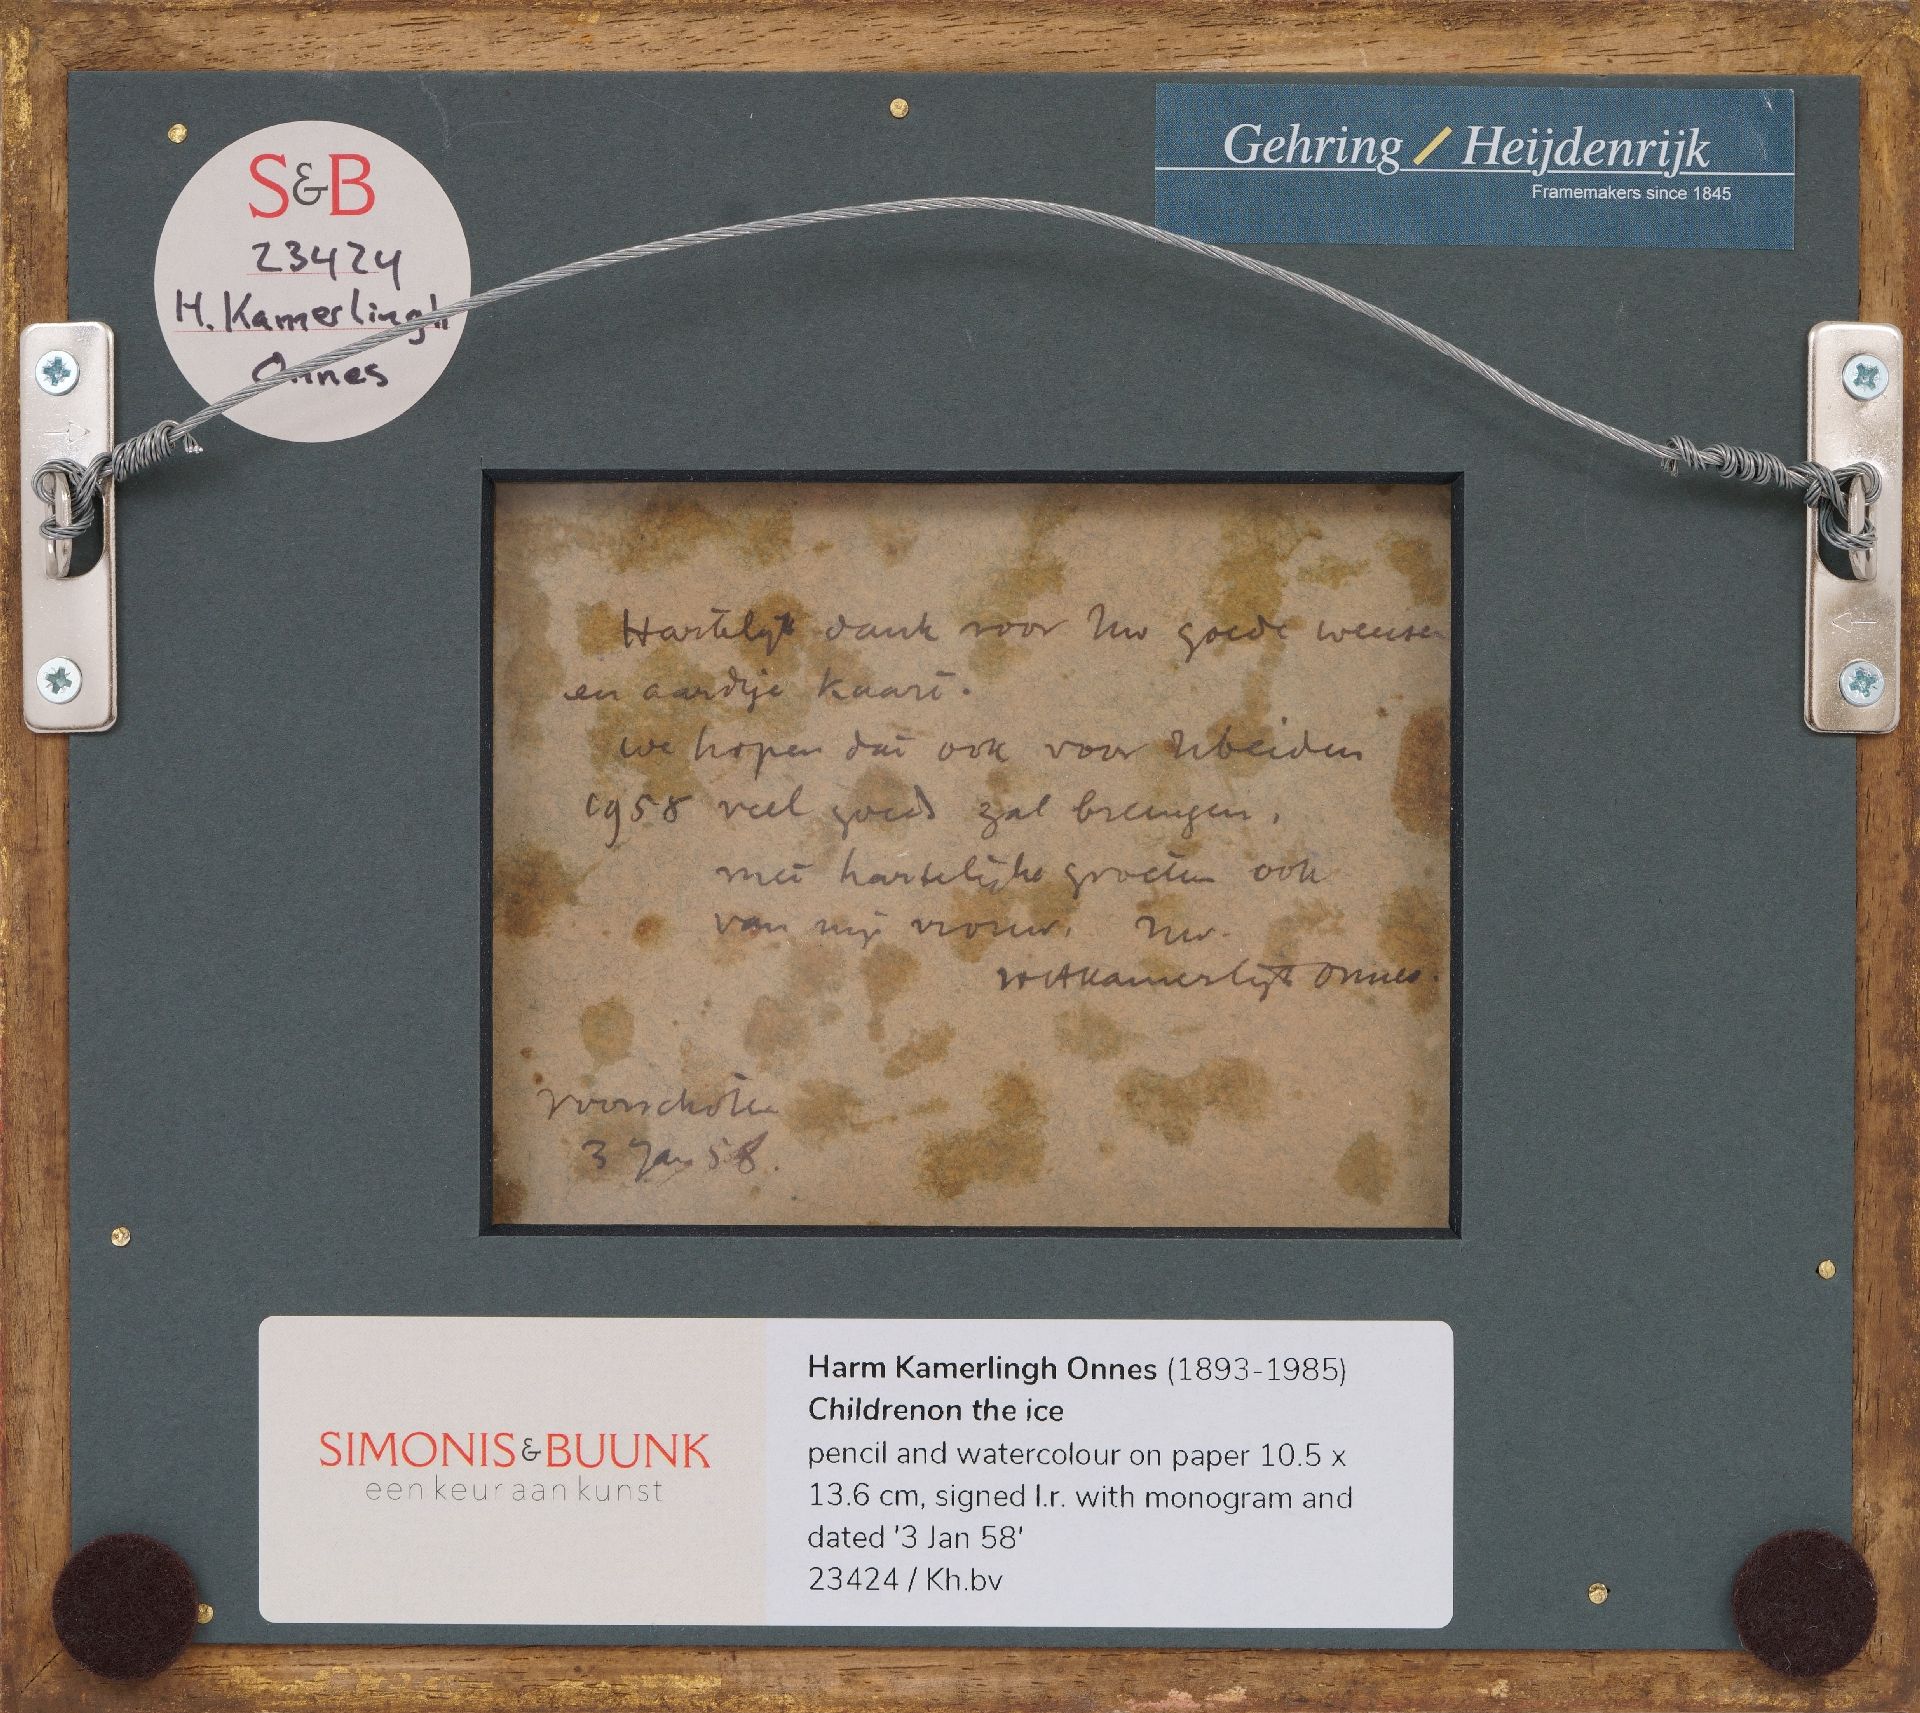 S&B
23424
H. Kamerlingh
Onnes
Gehring / Heijdenrijk
Framemakers since 1845
Hartelijk dank voor Uw goede wensen
en aardige kaart.
we hopen dat ook voor U beiden
1958 veel goeds zal brengen.
met hartelijke groeten ook
van mijn vrouw. Uw.
HHKamerlingh Onnes.
Voorschoten
3 Jan 58.
SIMONIS&BUUNK
een keur aan kunst
Harm Kamerlingh Onnes (1893-1985)
Childrenon the ice
pencil and watercolour on paper 10.5 x
13.6 cm, signed l.r. with monogram and
dated '3 Jan 58'
23424 / Kh.bv